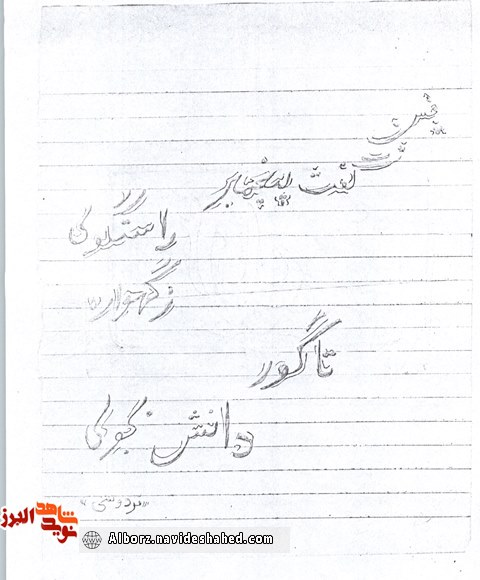 چنین
گفت پیغامبر
راستگوی
زگهواره
تا گور
دانش بجوی
"فردوسی"
نوید شاهد البرز
Alborz.navideshahed.com